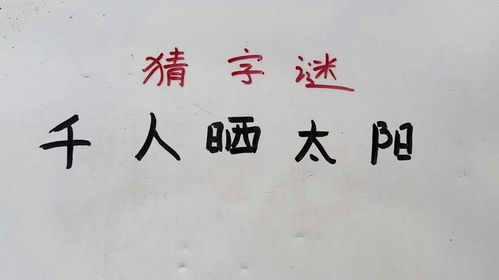 猜字谜
千人晒太阳